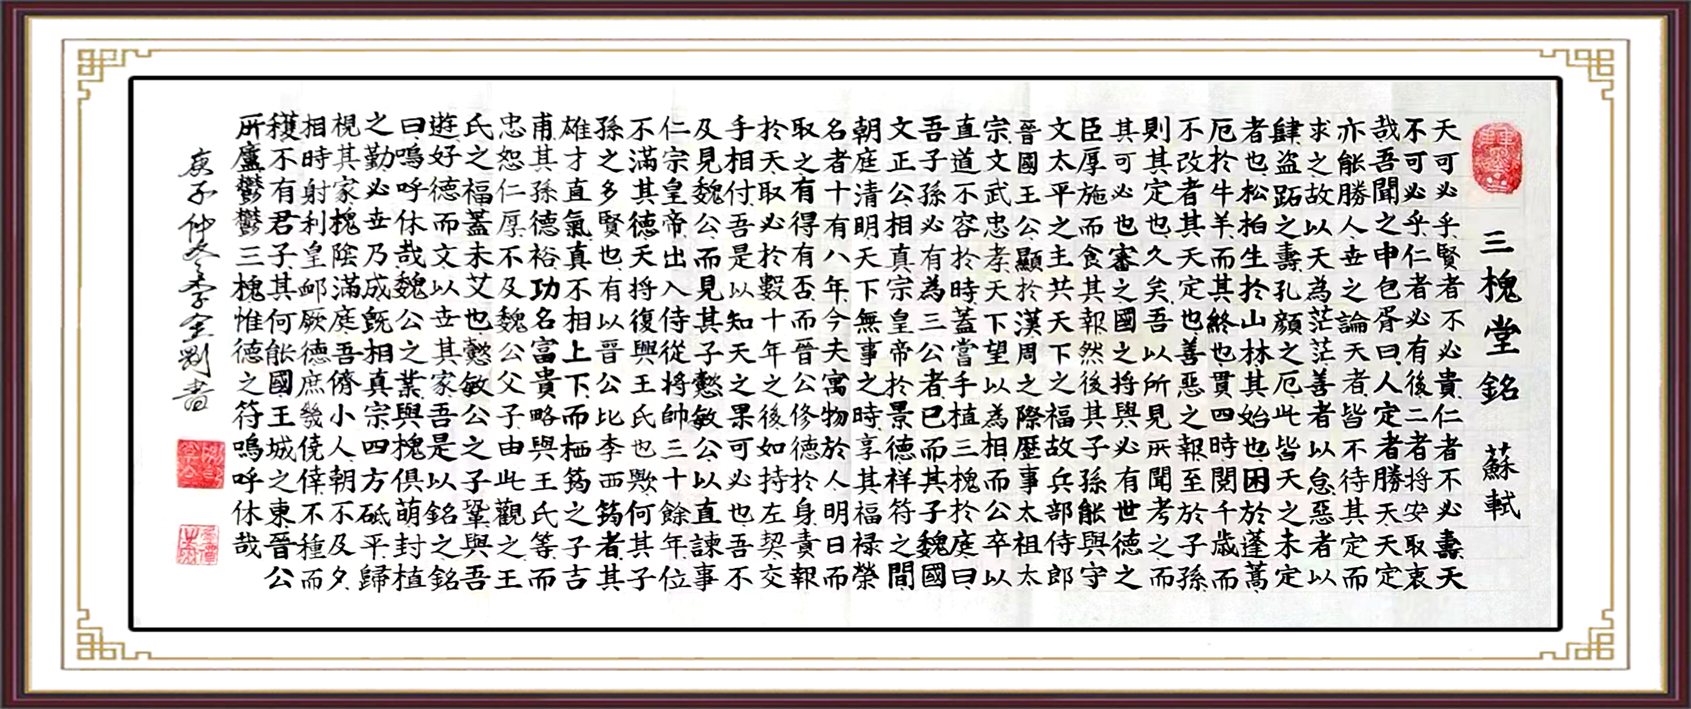 三槐堂銘 蘇軾
天可必乎賢者不必貴仁者不必壽天
不可必乎仁者必有後二者將安取衷
哉吾聞之申包胥曰人定者勝天天定
亦能勝人世之論天者皆不待其定而
求之故以天為茫茫善者以怠惡者以
肆盜跖之壽孔顏之厄此皆天之未定
者也松柏生於山林其始也困於蓬蒿
厄於牛羊而其終也貫四時閱千歲而
不改者其天定也善惡之報至於子孫
則其定也久矣吾以所見所聞考之而
其可必也審之國之將興必有世德之
臣厚施而食其報然後其子孫能與守
文太平之主共天下之福故兵部侍郎
晉國王公顯於漢周之際歷事太祖太
宗文武忠孝天下望以為相而公卒以
直道不容於時蓋嘗手植三槐於庭曰
吾子孫必有為三公者已而其子魏國
文正公相真宗皇帝於景德祥符之間
朝庭清明天下無事之時享其福祿榮
名者十有八年今夫寓物於人明日而
取之有得有否而晉公修德於身責報
於天取必於數十年之後如持左契交
手相付吾是以知天之果可必也吾不
及見魏公而見其子懿敏公以直諫事
仁宗皇帝出入侍從將帥三十餘年位
不滿其德天將復興王氏也歟何其子
孫之多賢也有以晉公比李西筠者其
雄才直氣真不相上下而栖筠之子吉
甫其孫德裕功名富貴略與王氏等而
忠恕仁厚不及魏公父子由此觀之王
氏之福蓋未艾也懿敏公之子鞏與吾
遊好德而文以世其家吾是以銘之銘
曰嗚呼休哉魏公之業與槐俱萌封植
之勤必世乃成既相真宗四方砥平歸
視其家槐陰滿庭吾儕小人朝不及夕
相時射利皇卹厥德庶幾僥倖不種而
穫不有君子其何能國王城之東晉公
所廬鬱鬱三槐惟德之符嗚呼休哉
庚子仲冬 書